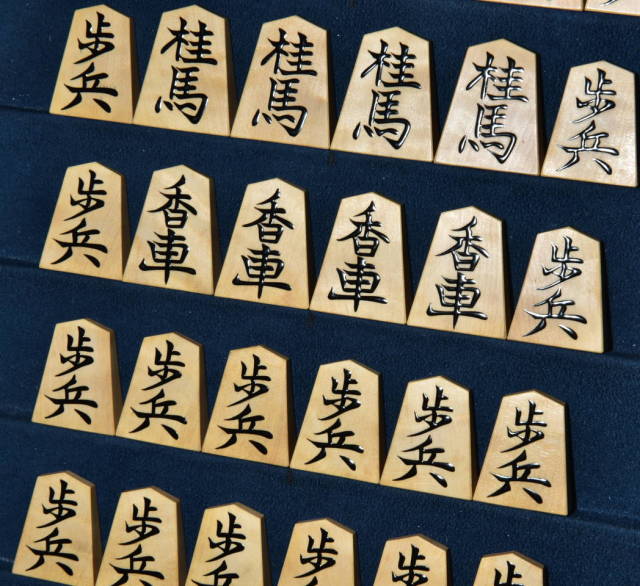 歩兵 桂馬 桂馬 桂馬 桂馬 歩兵
歩兵 香車 香車 香車 香車 歩兵
歩兵 歩兵 歩兵 歩兵 歩兵 歩兵
歩兵 歩兵 歩兵 歩 歩 歩